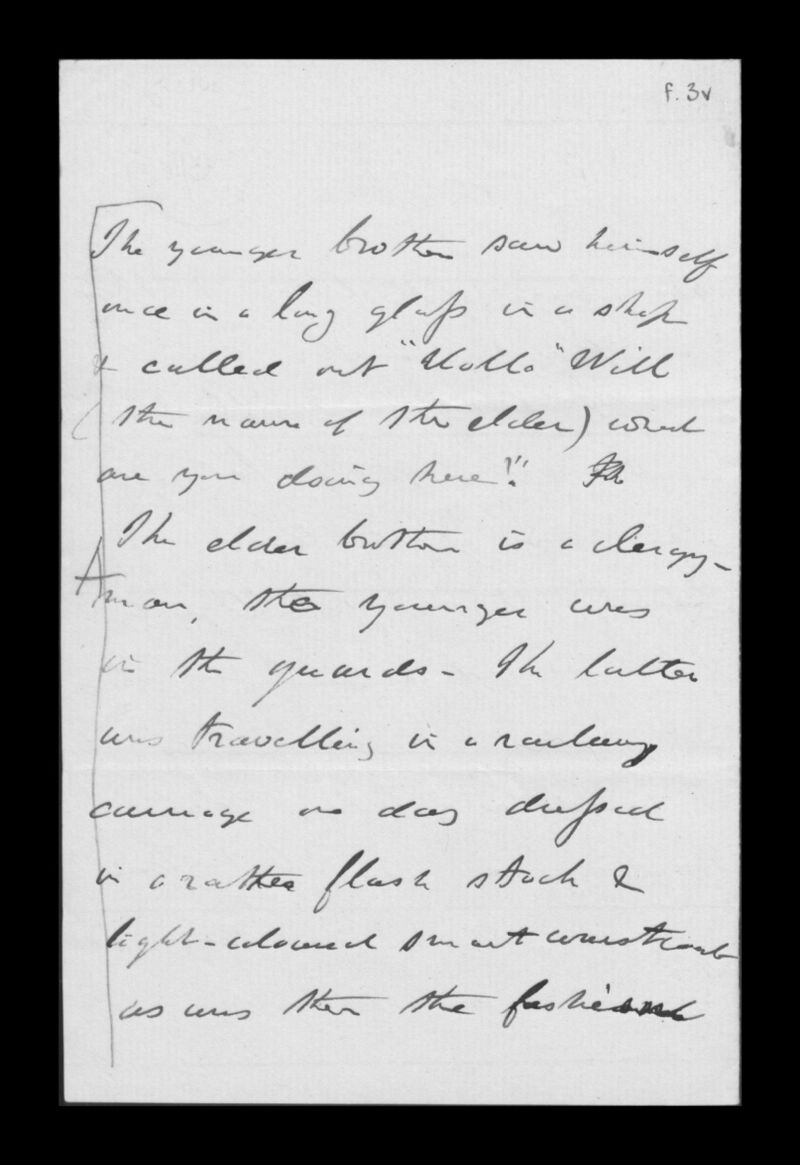 f. 3v
The younger brother saw himself
once in a long glass in a shop
& called out "Hollo" Will
(the name of the elder) what
are you doing here!"
The elder brother is a clergy-
man, the younger was
in the guards - The latter
was travelling in a railway
carriage one day dressed
in a rather flash stock &
light-coloured smart waistcoat
as was then the fashion